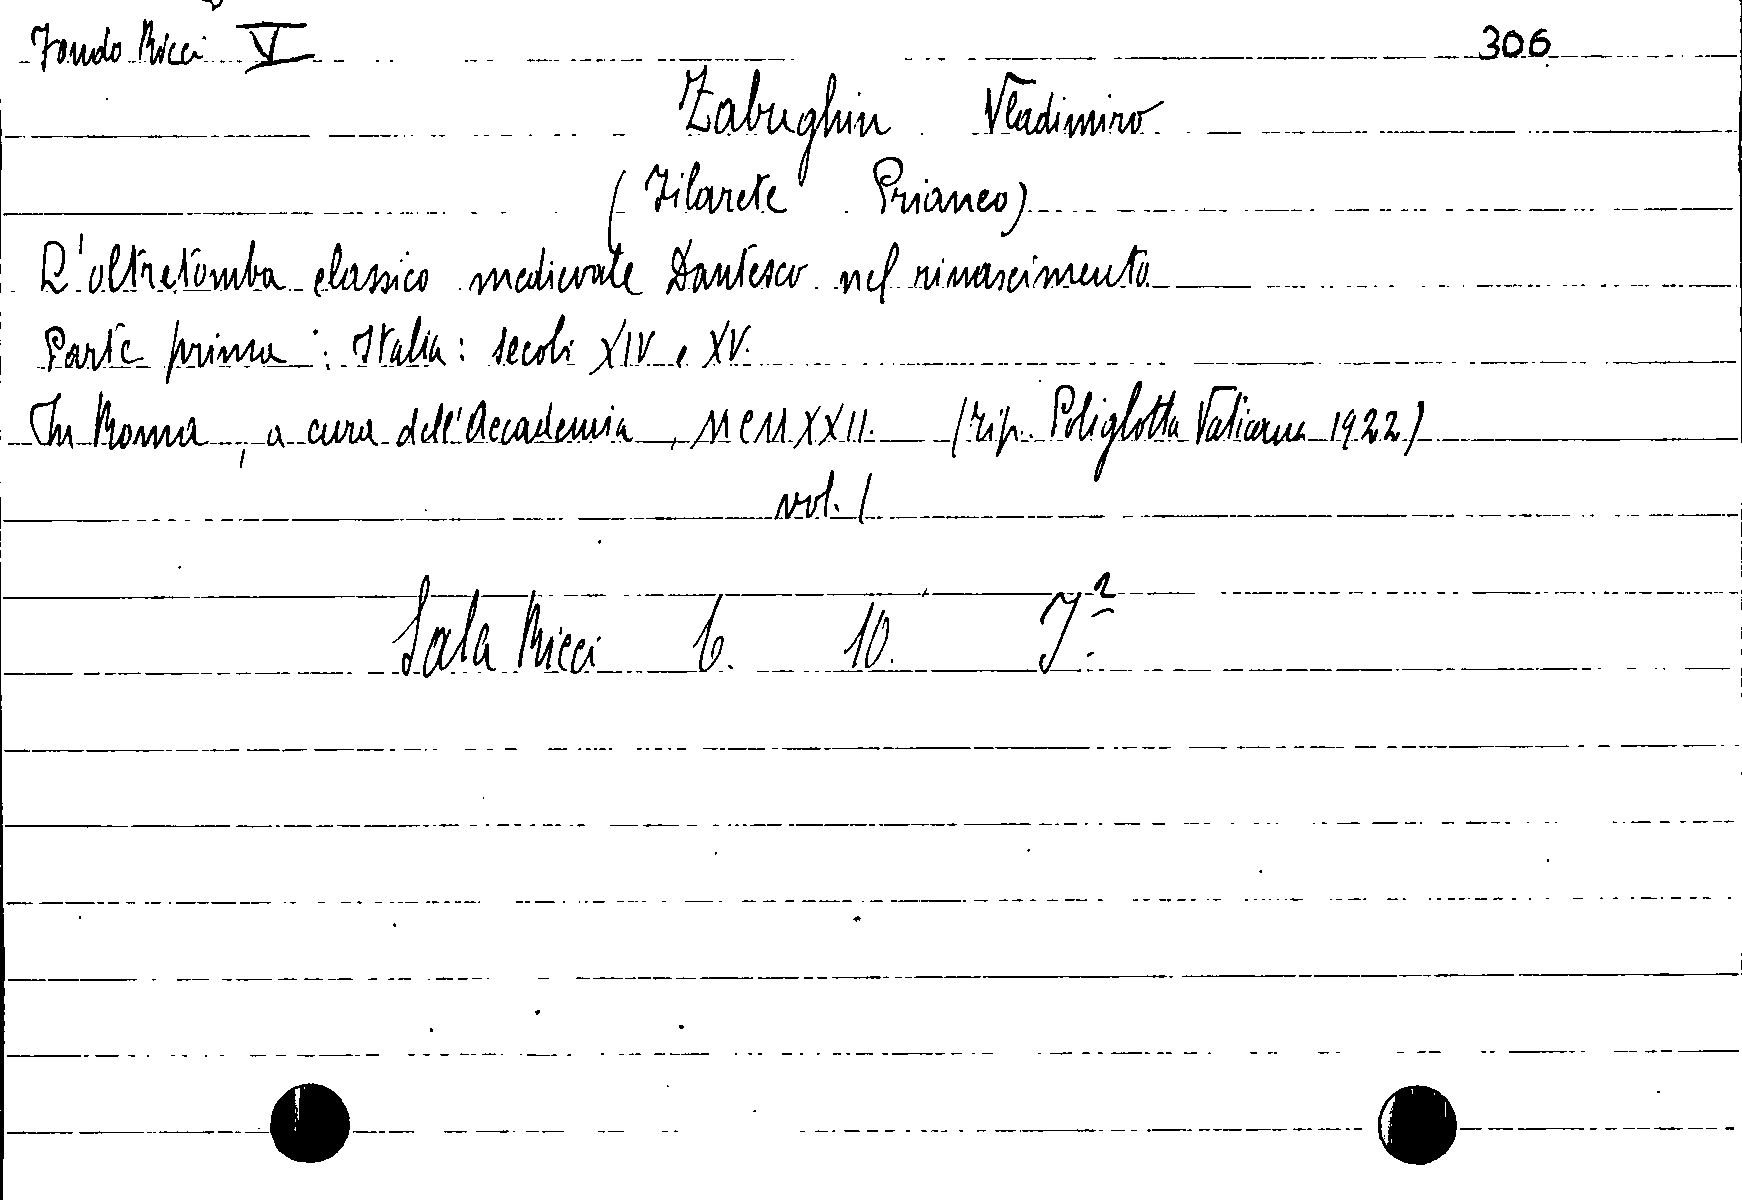 Fondo Ricci V 306
Zabughin Vladimiro
(Filarete Prianeo)
L'oltretomba classico medievale Dantesco nel rinascimento
Parte prima : Italia : secoli XIV e XV.
In Roma, a cura dell'Accademia, MCMXXII. (tip. Poliglotta Vaticana 1922)
vol. 1
Sala Ricci 6. 10.